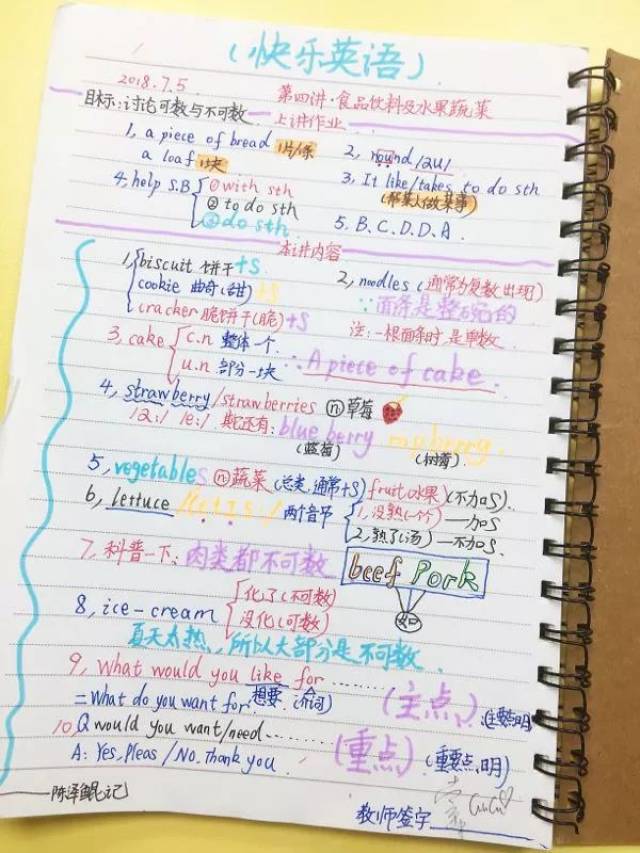 (快乐英语)
2018.7.5
第四讲·食品饮料及水果蔬菜
目标:讨论可数与不可数
上讲作业
1, a piece of bread 1片/条
a loaf 1块
2, round /aʊ/
3, It like/takes to do sth
(帮某人做某事)
4, help S.B ①with sth
②to do sth
③do sth
5. B. C. D. D. A.
本讲内容
1, biscuit 饼干+S
cookie 曲奇(甜)+S
cracker 脆饼干(脆)+S
2, noodles (通常为复数出现)
∵面条是整碗的
注:一根面条时,是单数.
3, cake c.n 整体一个
u.n 部分一块
∴A piece of cake.
4, strawberry/strawberries ⓝ草莓
/ɔː/ 还有: blue berry
(蓝莓) (树莓)
5, vegetables ⓝ蔬菜(总类,通常+S) fruit(水果)(不加S).
6, lettuce 两个音节 1, 没熟(一个)—加S
2, 熟了(汤)—不加S.
7, 科普一下: 肉类都不可数
beef Pork
8, ice-cream 化了(不可数)
没化(可数)
夏天太热,所以大部分是不可数.
9, What would you like for ......
=What do you want for 想要
(主点)
10, Q would you want/need........
A: Yes, Pleas / No, thank you.
(重点) (重要点,明)
——陈泽鲲记
教师签字